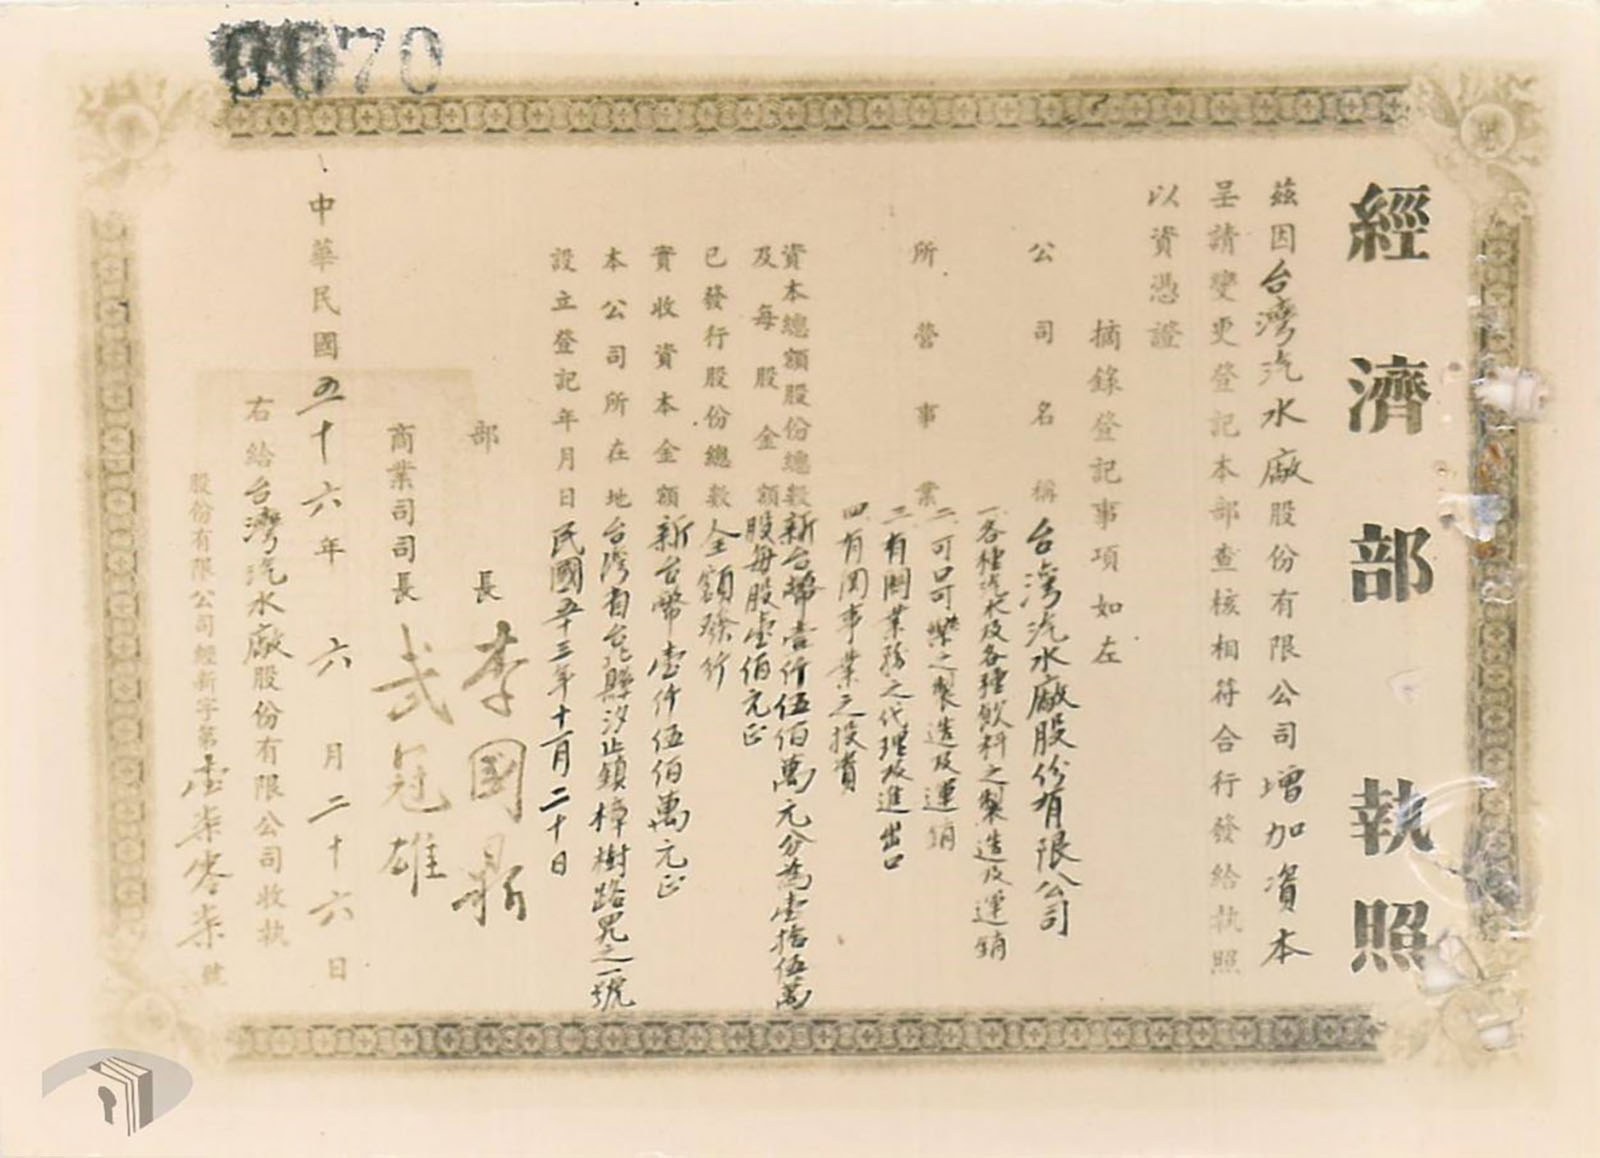 0670
經濟部執照
茲因台灣汽水廠股份有限公司增加資本
呈請變更登記本部查核相符合行發給執照
以資憑證
摘錄登記事項如左
公司名稱 台灣汽水廠股份有限公司
所營事業 一各種汽水及各種飲料之製造及運銷
二可口可樂之製造及運銷
三有關業務之代理及進出口
四有關事業之投資
資本總額股份總數 新台幣壹仟伍佰萬元分為壹拾伍萬
及每股金額 股每股壹佰元正
已發行股份總數 全額發行
實收資本金額 新台幣壹仟伍佰萬元正
本公司所在地 台灣省台北縣汐止鎮樟樹路 之一號
設立登記年月日 民國五十三年十一月二十日
部長 李國鼎
商業司司長 武冠雄
中華民國五十六年六月二十六日
右給台灣汽水廠股份有限公司收執
股份有限公司經新字第壹柒零柒號